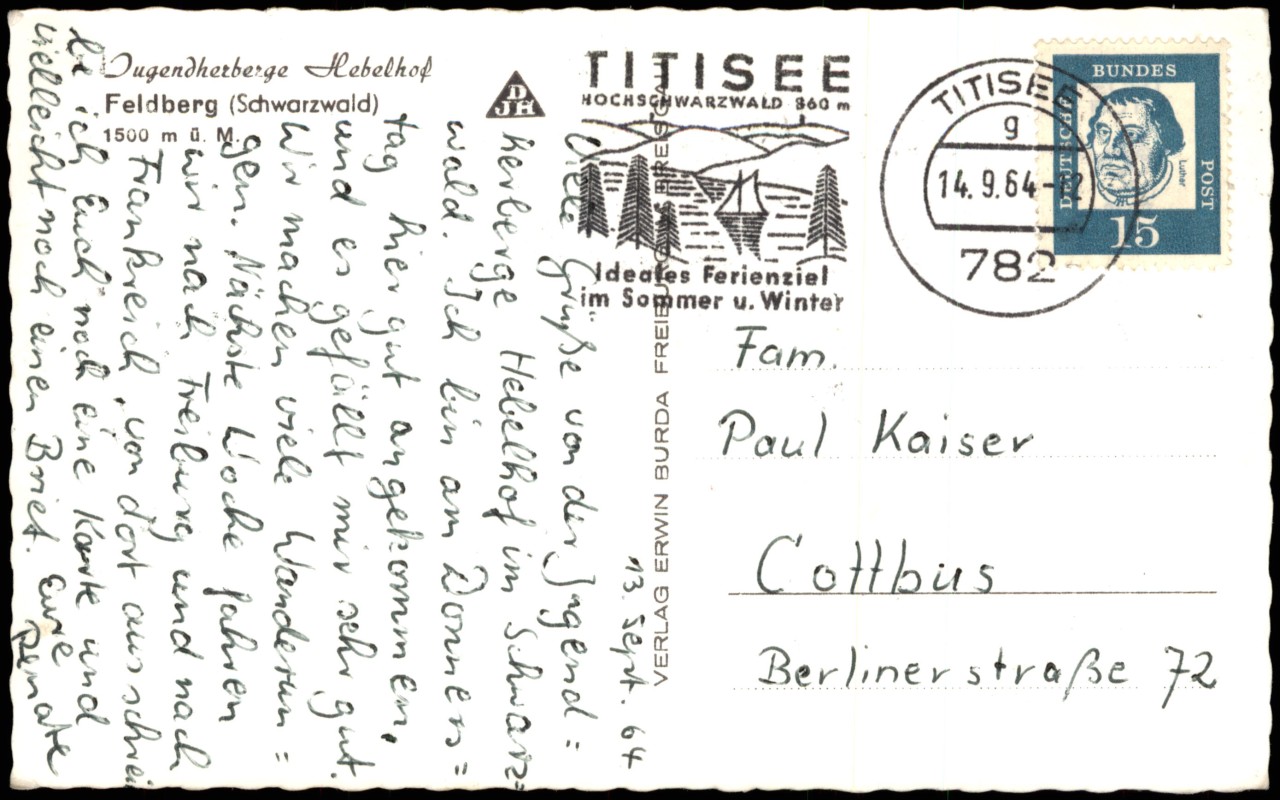 Jugendherberge Hebelhof
Feldberg (Schwarzwald)
1500 m ü. M.
DJH
TITISEE
HOCHSCHWARZWALD 860 m
Ideales Ferienziel
im Sommer u. Winter
TITISEE
g
14.9.64-12
782
DEUTSCHE
BUNDES
POST
Luther
15
VERLAG ERWIN BURDA FREIBURG IM BREISGAU
13. Sept. 64
Viele Grüße von der Jugend=
herberge Hebelhof im Schwarz=
wald. Ich bin am Donners=
tag hier gut angekommen,
und es gefällt mir sehr gut.
Wir machen viele Wanderun=
gen. Nächste Woche fahren
wir nach Freiburg und nach
Frankreich, von dort aus schrei
be ich Euch noch eine Karte und
vielleicht noch einen Brief. Eure
Renate
Fam.
Paul Kaiser
Cottbus
Berlinerstraße 72